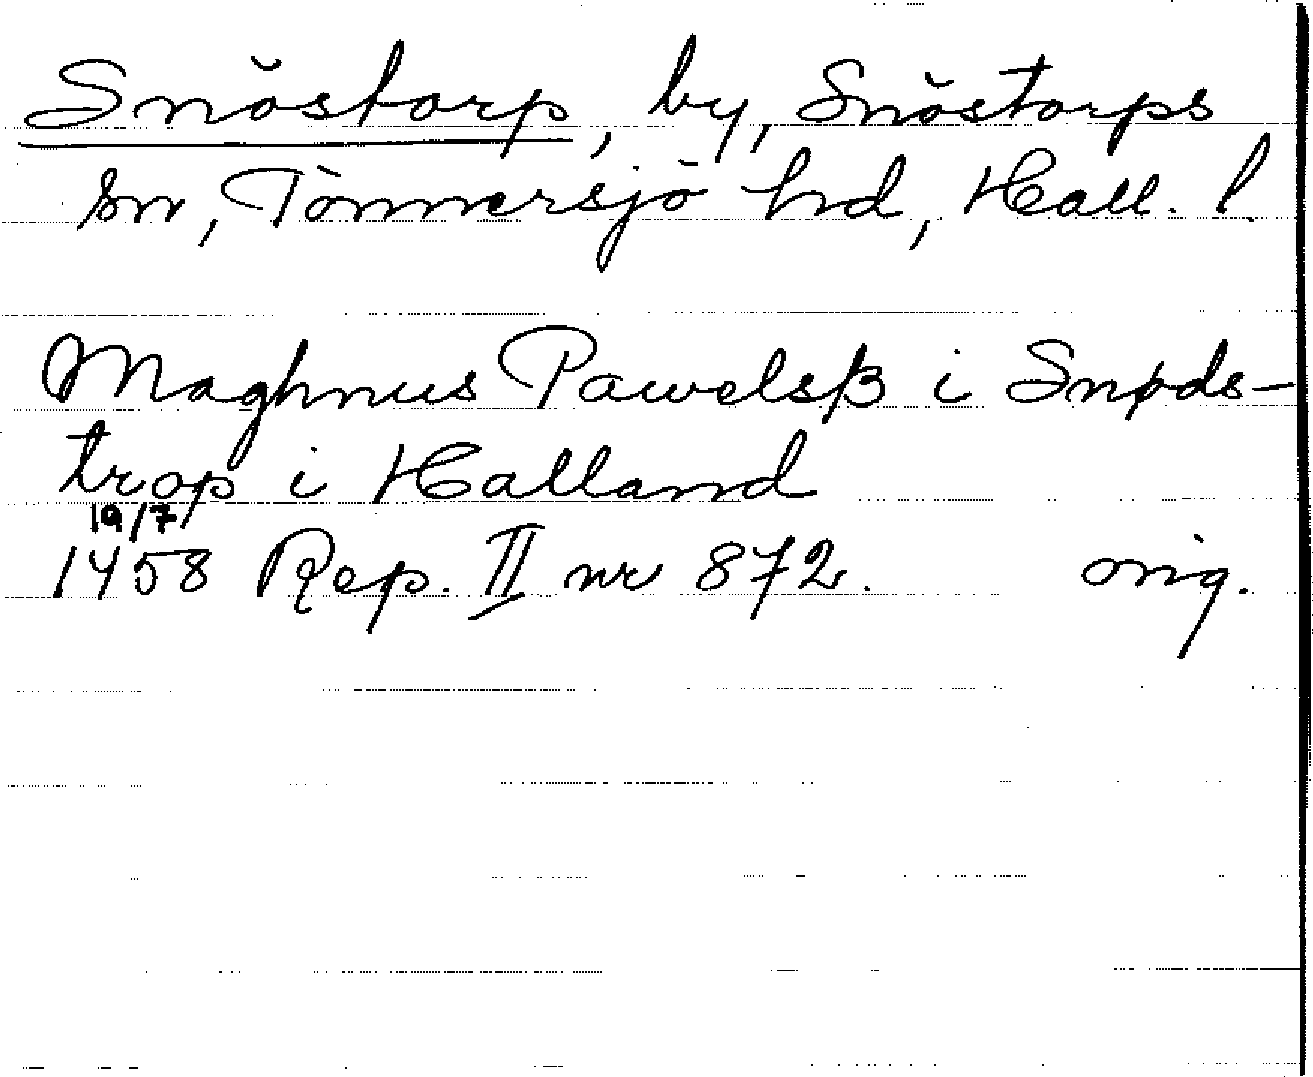 Snöstorp, by, Snöstorps
sn, Tönnersjö hd, Hall. l.
Maghnus Pawelsß i Snøds-
trop i Halland
19/7
1458 Rep. II nr 872. orig.